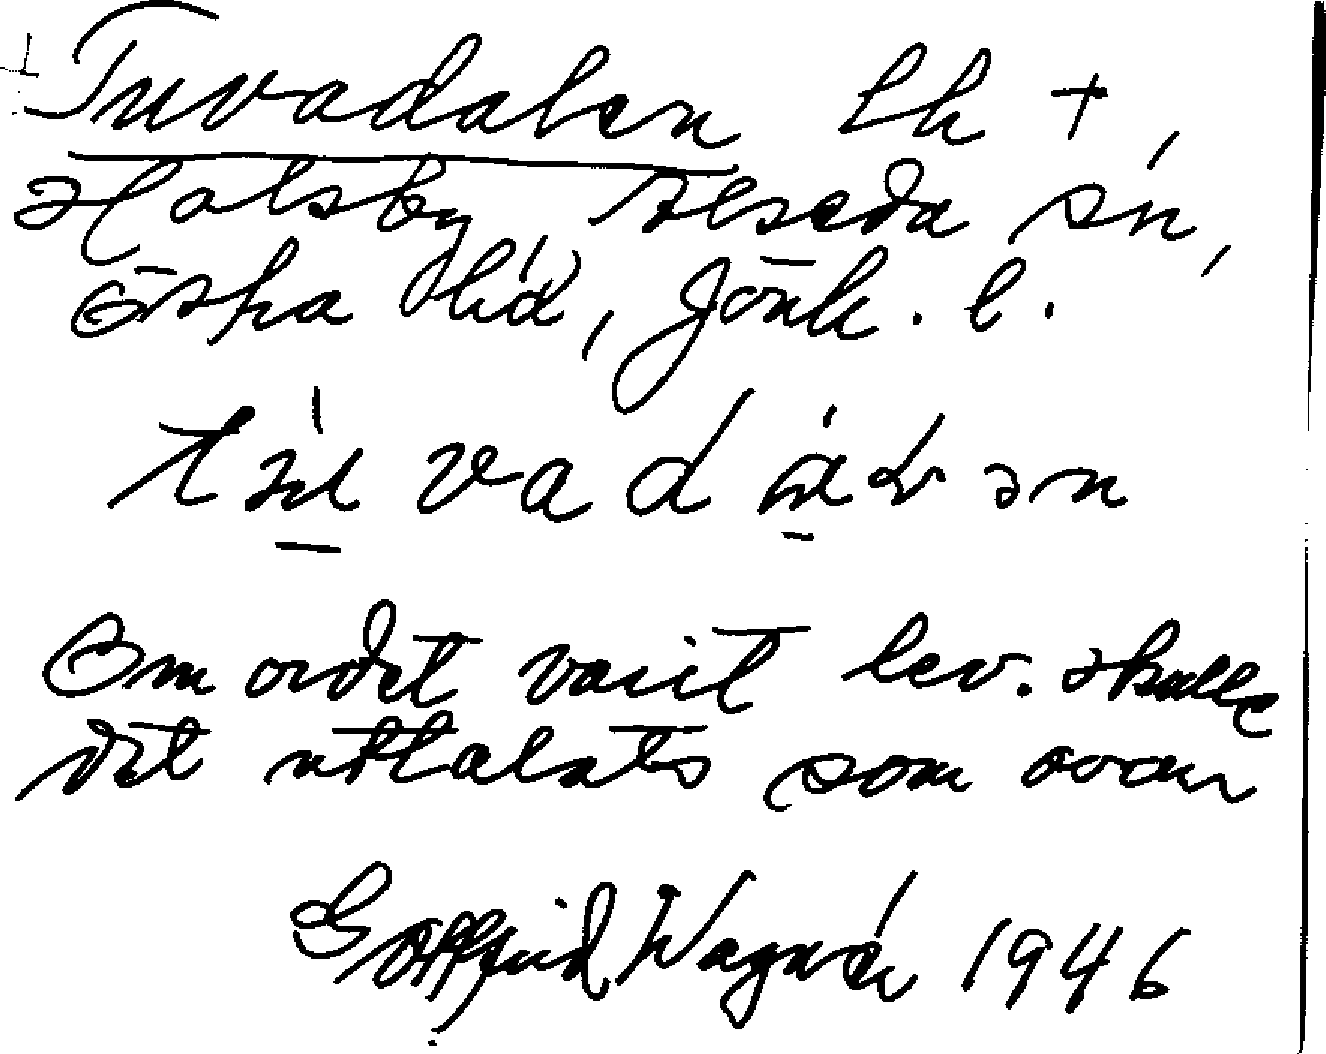 Tuvadalen lh +,
Holsby, Alseda sn,
Östra hd, Jönk. l.
Om ordet varit lev. skulle
det uttalats som ovan
Gottfrid Wagnér 1946